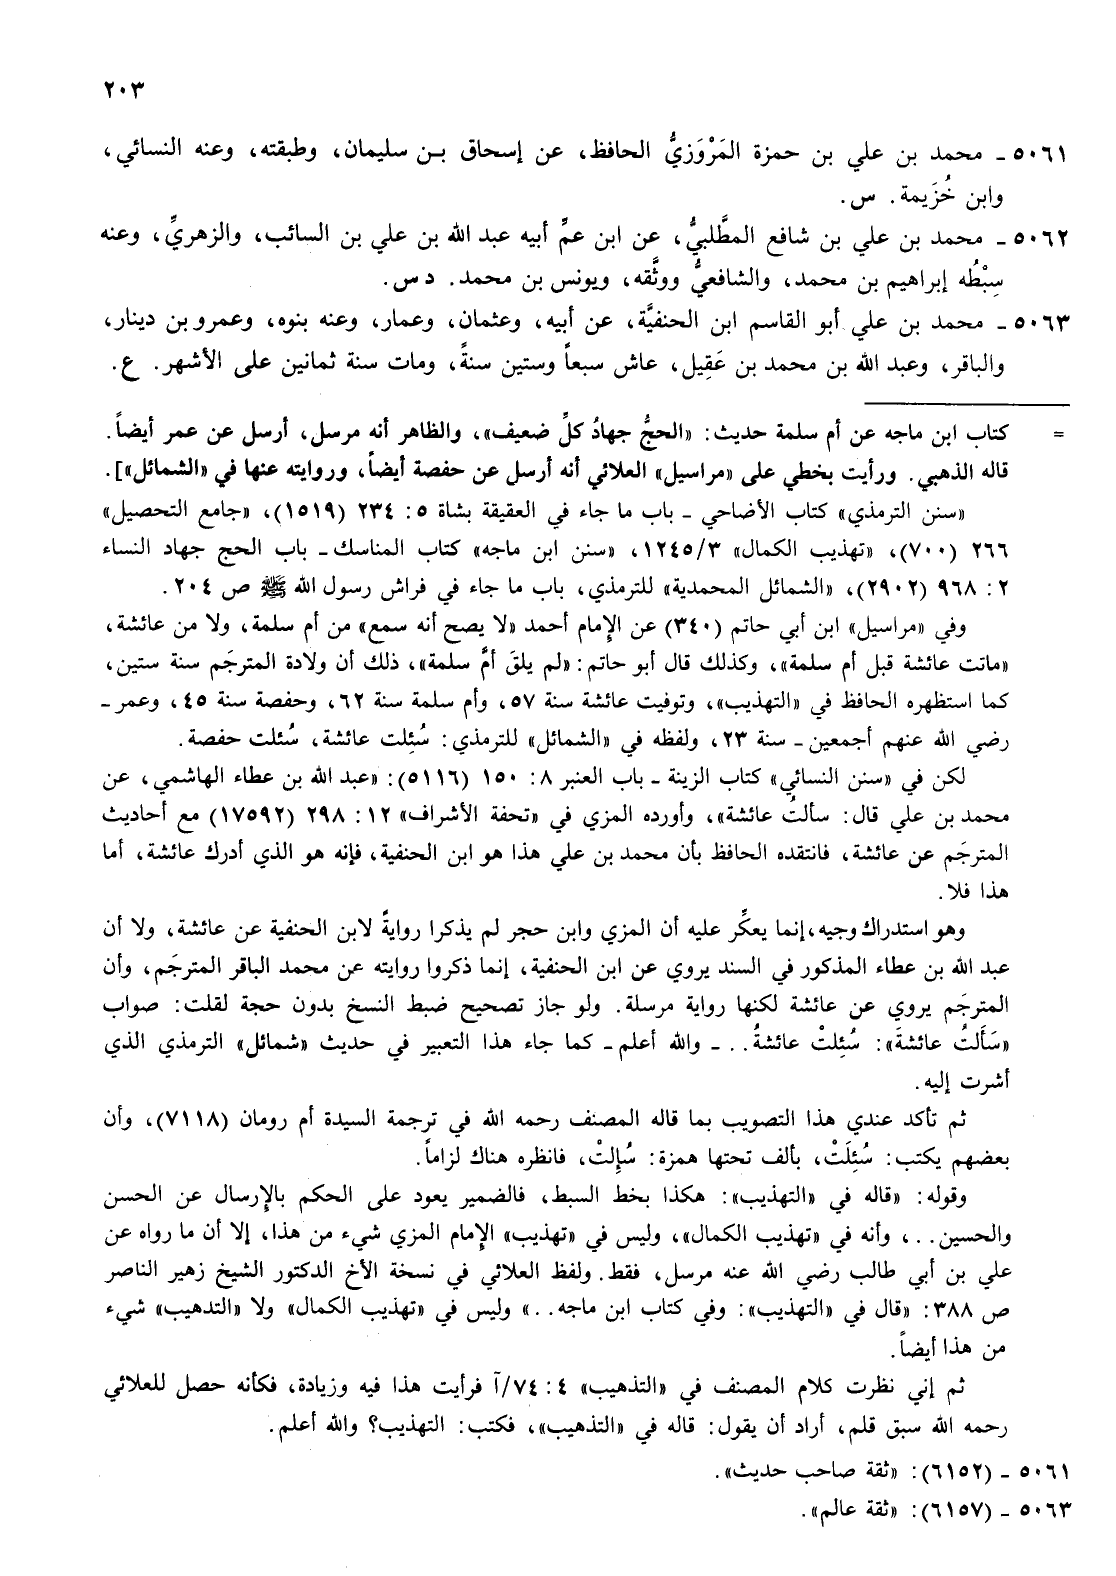 ٢٠٣
٥٠٦١ ـ محمد بن علي بن حمزة المَرْوَزيُّ الحافظ، عن إسحاق بـن سليمان، وطبقته، وعنه النسائي،
وابن خُزَيمة. س.
٥٠٦٢ ـ محمد بن علي بن شافع المطَّلبيُّ، عن ابن عمِّ أبيه عبد الله بن علي بن السائب، والزهريِّ، وعنه
سِبْطُه إبراهيم بن محمد، والشافعيُّ ووثَّقه، ويونس بن محمد. د س.
٥٠٦٣ ـ محمد بن علي أبو القاسم ابن الحنفيَّة، عن أبيه، وعثمان، وعمار، وعنه بنوه، وعمرو بن دينار،
والباقر، وعبد الله بن محمد بن عَقِيل، عاش سبعاً وستين سنةً، ومات سنة ثمانين على الأشهر. ع.
= كتاب ابن ماجه عن أم سلمة حديث: «الحجُّ جهادُ كلِّ ضعيف»، والظاهر أنه مرسل، أرسل عن عمر أيضاً.
قاله الذهبي. ورأيت بخطي على «مراسيل» العلائي أنه أرسل عن حفصة أيضاً، وروايته عنها في «الشمائل»].
«سنن الترمذي» كتاب الأضاحي ـ باب ما جاء في العقيقة بشاة ٥: ٢٣٤ (١٥١٩)، «جامع التحصيل»
٢٦٦ (٧٠٠)، «تهذيب الكمال» ٣/١٢٤٥، «سنن ابن ماجه» كتاب المناسك ـ باب الحج جهاد النساء
٢: ٩٦٨ (٢٩٠٢)، «الشمائل المحمدية» للترمذي، باب ما جاء في فراش رسول الله ﷺ ص ٢٠٤.
وفي «مراسيل» ابن أبي حاتم (٣٤٠) عن الإمام أحمد «لا يصح أنه سمع» من أم سلمة، ولا من عائشة،
«ماتت عائشة قبل أم سلمة»، وكذلك قال أبو حاتم: «لم يلقَ أمَّ سلمة»، ذلك أن ولادة المترجَم سنة ستين،
كما استظهره الحافظ في «التهذيب»، وتوفيت عائشة سنة ٥٧، وأم سلمة سنة ٦٢، وحفصة سنة ٤٥، وعمر ـ
رضي الله عنهم أجمعين ـ سنة ٢٣، ولفظه في «الشمائل» للترمذي: سُئِلت عائشة، سُئلت حفصة.
لكن في «سنن النسائي» كتاب الزينة ـ باب العنبر ٨: ١٥٠ (٥١١٦): «عبد الله بن عطاء الهاشمي، عن
محمد بن علي قال: سألتُ عائشة»، وأورده المزي في «تحفة الأشراف» ١٢: ٢٩٨ (١٧٥٩٢) مع أحاديث
المترجَم عن عائشة، فانتقده الحافظ بأن محمد بن علي هذا هو ابن الحنفية، فإنه هو الذي أدرك عائشة، أما
هذا فلا.
وهو استدراك وجيه، إنما يعكِّر عليه أن المزي وابن حجر لم يذكرا روايةً لابن الحنفية عن عائشة، ولا أن
عبد الله بن عطاء المذكور في السند يروي عن ابن الحنفية، إنما ذكروا روايته عن محمد الباقر المترجَم، وأن
المترجَم يروي عن عائشة لكنها رواية مرسلة. ولو جاز تصحيح ضبط النسخ بدون حجة لقلت: صواب
«سَأَلتُ عائشةَ»: سُئِلتْ عائشةُ.. ـ والله أعلم ـ كما جاء هذا التعبير في حديث «شمائل» الترمذي الذي
أشرت إليه.
ثم تأكد عندي هذا التصويب بما قاله المصنف رحمه الله في ترجمة السيدة أم رومان (٧١١٨)، وأن
بعضهم يكتب: سُئِلَتْ، بألف تحتها همزة: سُإلتْ، فانظره هناك لزاماً.
وقوله: «قاله في «التهذيب»: هكذا بخط السبط، فالضمير يعود على الحكم بالإرسال عن الحسن
والحسين..، وأنه في «تهذيب الكمال»، وليس في «تهذيب» الإمام المزي شيء من هذا، إلا أن ما رواه عن
علي بن أبي طالب رضي الله عنه مرسل، فقط. ولفظ العلائي في نسخة الأخ الدكتور الشيخ زهير الناصر
ص ٣٨٨: «قال في «التهذيب»: وفي كتاب ابن ماجه..» وليس في «تهذيب الكمال» ولا «التذهيب» شيء
من هذا أيضاً.
ثم إني نظرت كلام المصنف في «التذهيب» ٤: ٧٤/آ فرأيت هذا فيه وزيادة، فكأنه حصل للعلائي
رحمه الله سبق قلم، أراد أن يقول: قاله في «التذهيب»، فكتب: التهذيب؟ والله أعلم.
٥٠٦١ ـ (٦١٥٢): «ثقة صاحب حديث».
٥٠٦٣ ـ (٦١٥٧): «ثقة عالم».